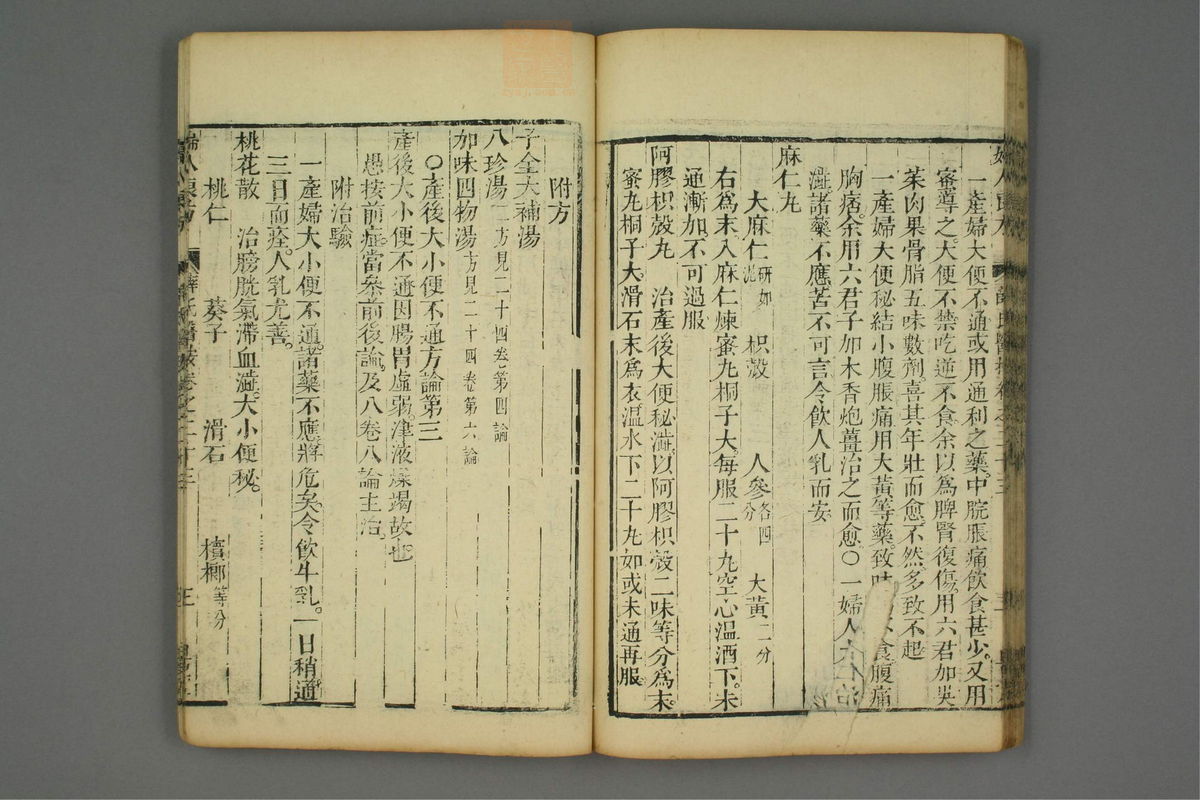 一產婦大便不通或用通利之藥中脘脹痛飲食甚少又用
蜜導之大便不禁吃逆不食余以爲脾腎復傷用六君加吳
茱肉果骨脂五味數劑喜其年壯而愈不然多致不起
一產婦大便秘結小腹脹痛用大黃等藥致 食腹痛
胸痞余用六君子加木香炮薑治之而愈○一婦人大
澁諸藥不應苦不可言令飲人乳而安
麻仁丸
大麻仁研如泥 枳殼 人參各四分 大黃二分
右爲末入麻仁煉蜜丸桐子大每服二十丸空心温酒下未
通漸加不可過服
阿膠枳殼丸 治產後大便秘澁以阿膠枳殼二味等分爲末
蜜丸桐子大滑石末爲衣温水下二十丸如或未通再服
附方
子全大補湯
八珍湯二方見二十四卷第四論
加味四物湯方見二十四卷第六論
○產後大小便不通方論第三
產後大小便不通因腸胃虛弱津液燥竭故也
愚按前症當叅前後論及八卷八論主治
附治驗
一產婦大小便不通諸藥不應將危矣令飲牛乳一日稍通
三日而痊人乳尤善
桃花散 治膀胱氣滯血澁大小便秘
桃仁 葵子 滑石 檳榔等分